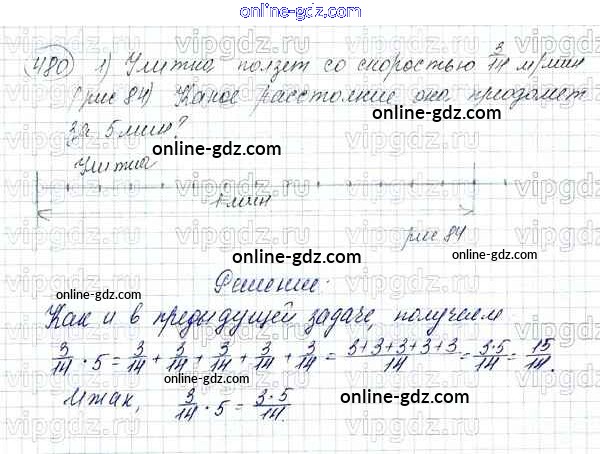 online-gdz.com
480 1) Улитка ползет со скоростью 3/14 м/мин
(рис 84) Какое расстояние она преодолеет
за 5 мин?
online-gdz.com
Улитка
online-gdz.com
1 мин
online-gdz.com
рис 84
online-gdz.com
Решение.
online-gdz.com
online-gdz.com
Как и в предыдущей задаче, получаем
3/14 · 5 = 3/14 + 3/14 + 3/14 + 3/14 + 3/14 = 3+3+3+3+3/14 = 3·5/14 = 15/14.
online-gdz.com
online-gdz.com
Итак, 3/14 · 5 = 3·5/14.
online-gdz.com